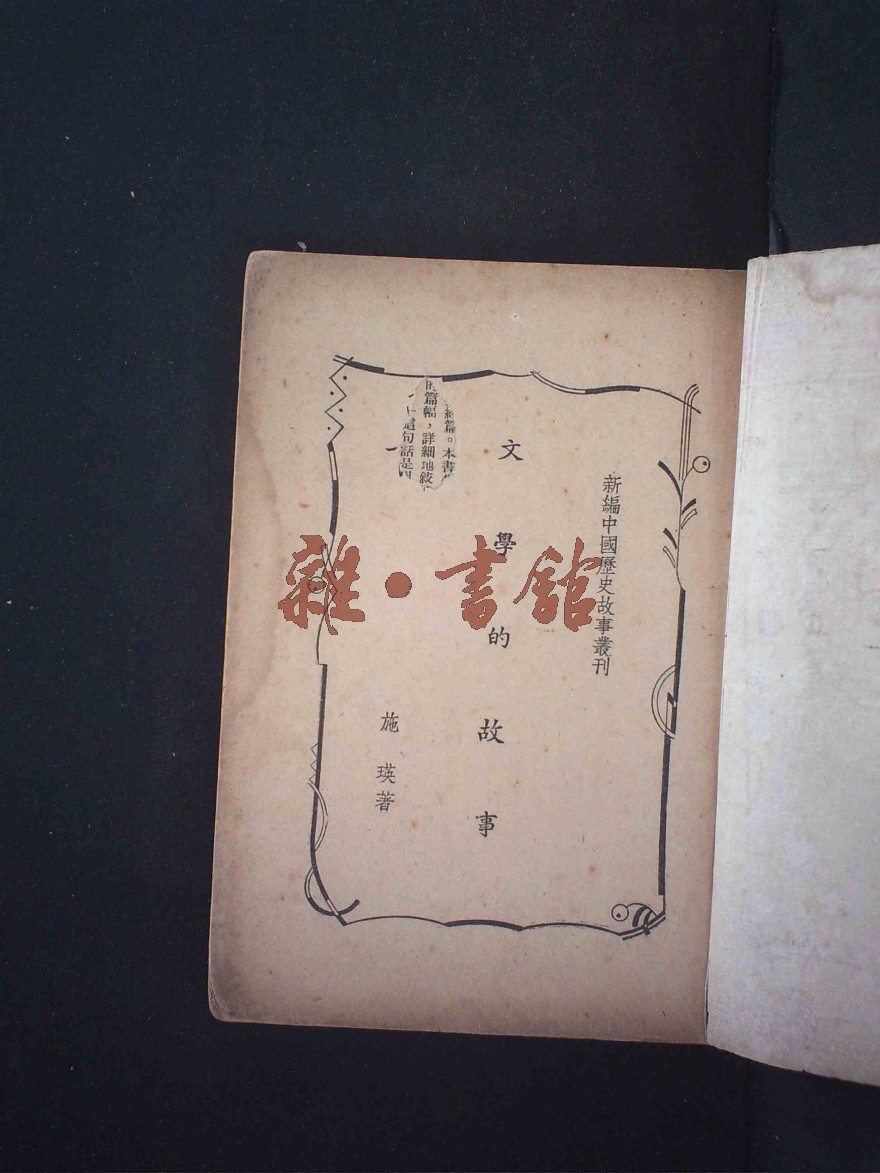 新編中國歷史故事叢刊
文學的故事
施瑛著
篇。本書
篇幅，詳細地敍
這句話是
雜·書館